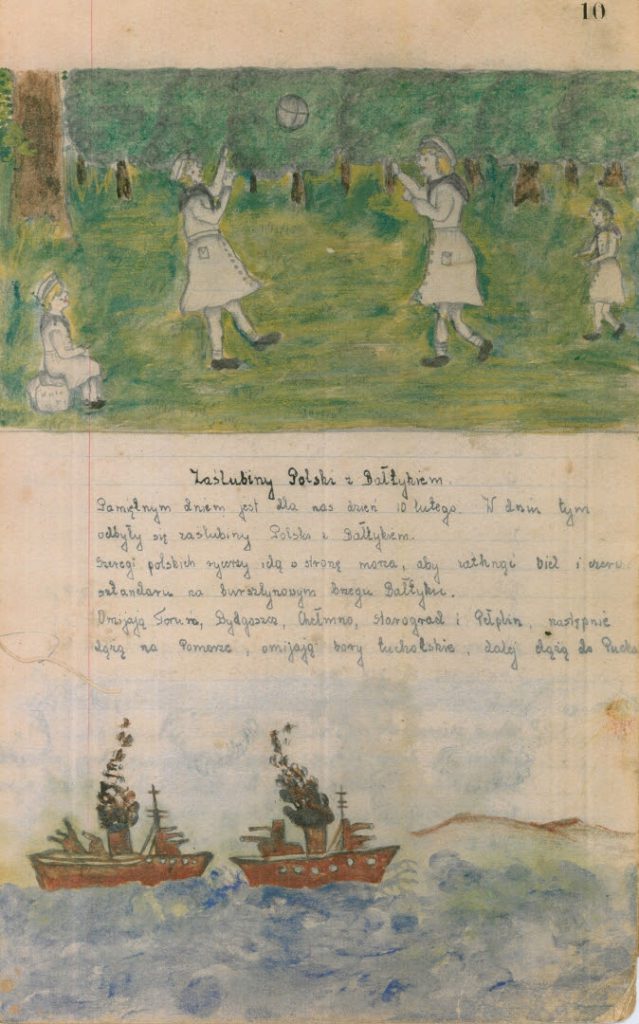 10
Zaślubiny Polski z Bałtykiem.
Pamiętnym dniem jest dla nas dzień 10 lutego. W dniu tym
odbyły się zaślubiny Polski z Bałtykiem.
Szeregi polskich rycerzy idą w stronę morza, aby zatknąć biel i czerw
sztandaru na bursztynowym brzegu Bałtyku.
Omijają Toruń, Bydgoszcz, Chełmno, Starograd i Pelplin, następnie
dążą na Pomorze, omijają bory tucholskie, dalej dążą do Pucka